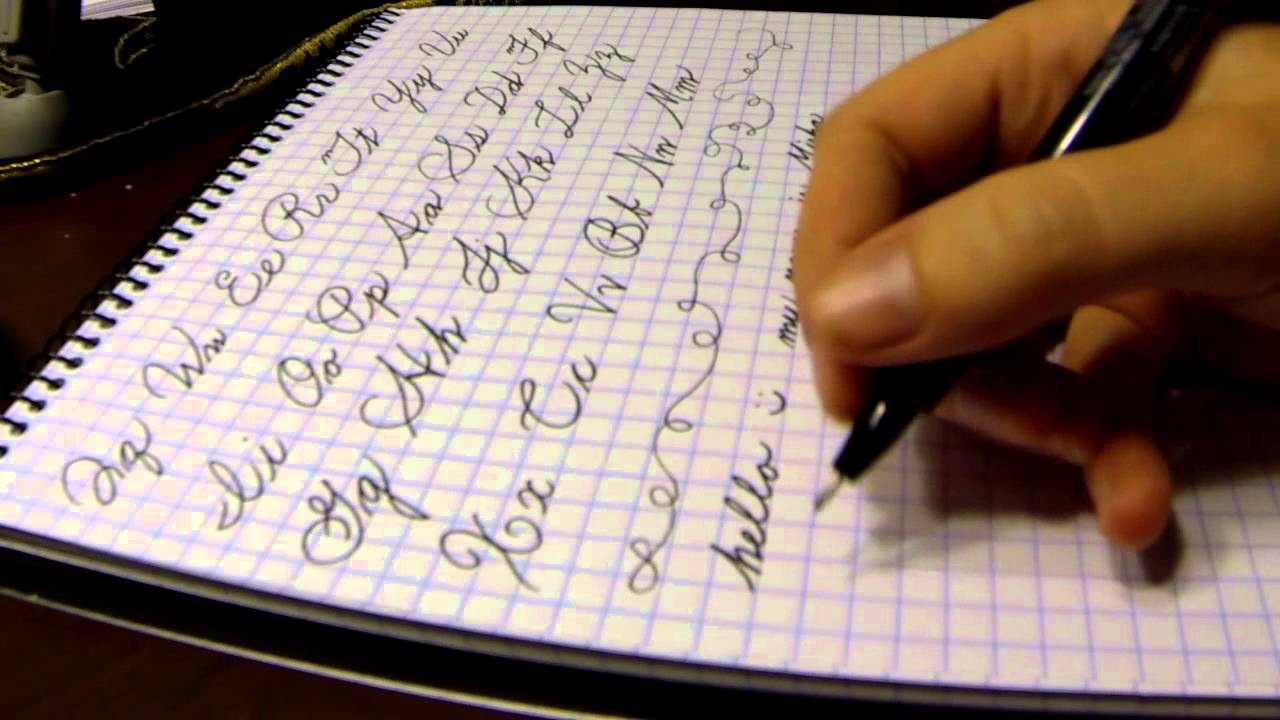 Qq Ww Ee Rr Tt Yy Uu
Ii Oo Pp Aa Ss Dd Ff
Gg Hh Jj Kk Ll Zz
Xx Cc Vv Bb Nn Mm
hello :) my name is